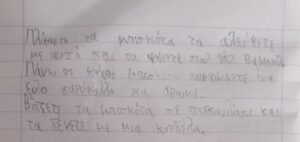 Πλάθετε τα μπισκότα τα αλείφετε
με αυτό και τα ψήνετε στους 180 βαθμούς
Πάνω σε κάθε μπισκότο καρφώνετε ένα
ξύλο για άρωμα.
Βάζετε τα μπισκότα σε σακουλάκι και
τα δένετε με μια κορδέλα.